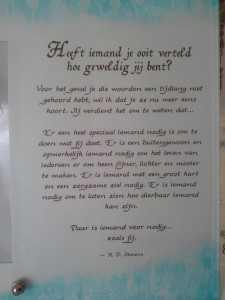 Heeft iemand je ooit verteld
hoe geweldig jij bent?
Voor het geval je die woorden een tijdlang niet
gehoord hebt, wil ik dat je ze nu weer eens
hoort. Jij verdient het om te weten dat...
Er een heel speciaal iemand nodig is om te
doen wat jij doet. Er is een buitengewoon en
opmerkelijk iemand nodig om het leven van
iedereen er om heen fijner, lichter en mooier
te maken. Er is iemand met een groot hart
en een zorgzame ziel nodig. Er is iemand
nodig om te laten zien hoe dierbaar iemand
kan zijn.
Daar is iemand voor nodig...
zoals jij.
~ R. D. Stevens